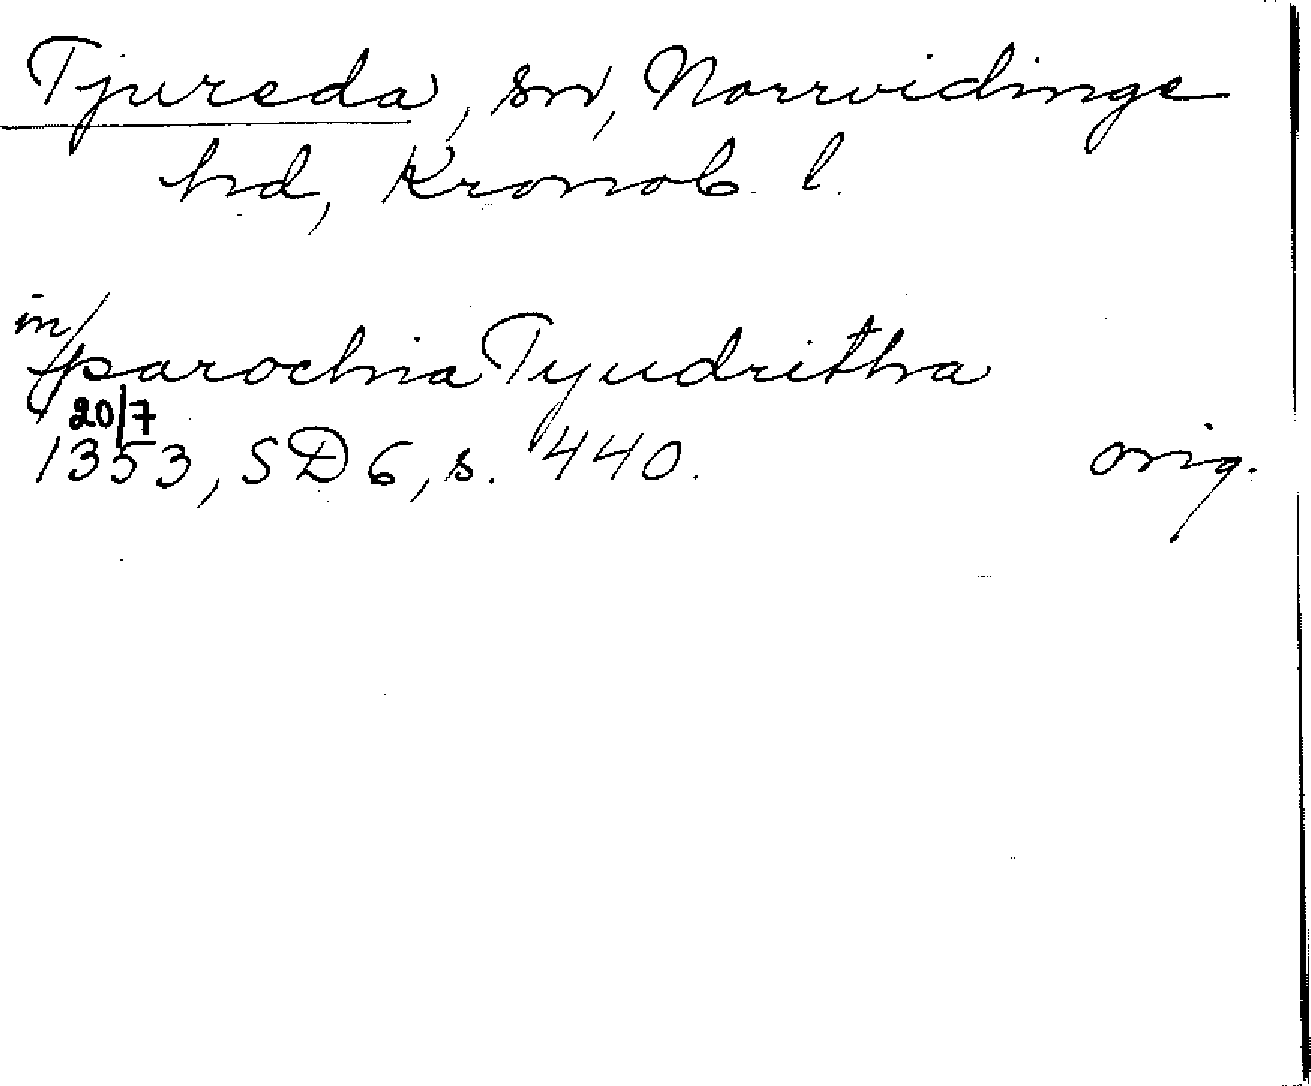 Tjureda, sn, Norrvidinge
hd, Kronob. l.
in
parochia Tyudritha
20/7
1353, SD 6, s. 440. orig.